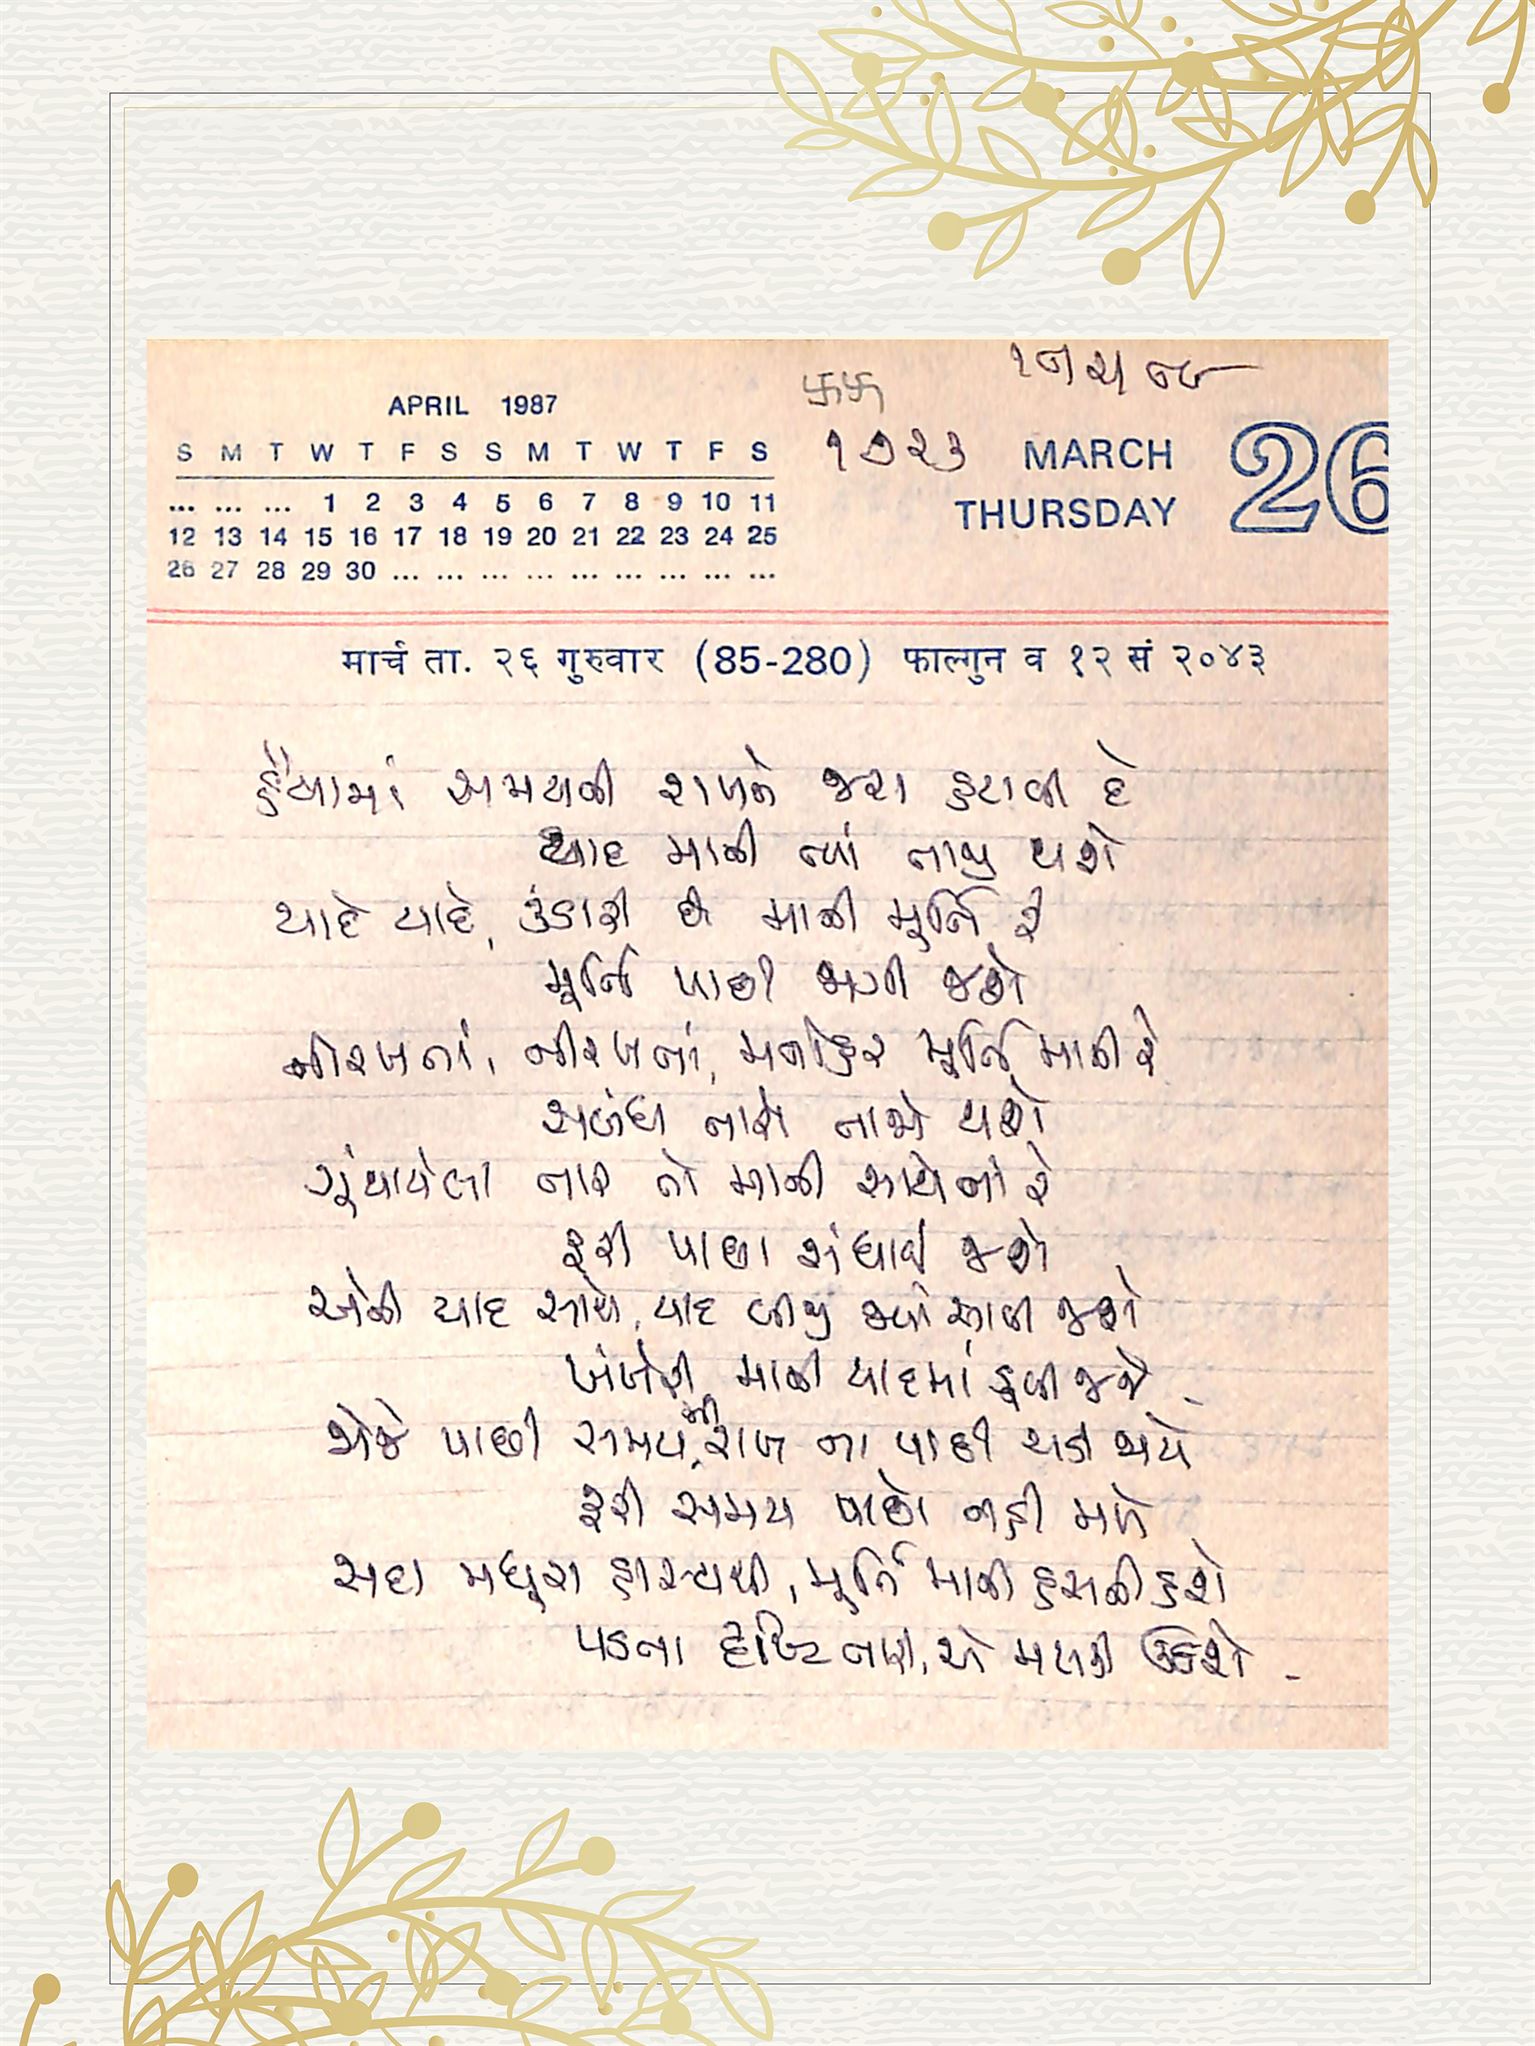 APRIL 1987
S M T W T F S S M T W T F S
... ... ... 1 2 3 4 5 6 7 8 9 10 11
12 13 14 15 16 17 18 19 20 21 22 23 24 25
26 27 28 29 30 ... ... ... ... ... ... ... ... ...
૧૭૨૩
MARCH 26
THURSDAY
मार्च ता. २६ गुरुवार (85-280) फाल्गुन व १२ सं २०४३
હૈયામાં સમયની રાખને જરા હટાવી દે
યાદ માની ત્યાં તાજી થશે
યાદે યાદે, ઉંડારી છે માની મૂર્તિ રે
મૂર્તિ પાછી જાગી જશે
નીરખતાં, નીરખતાં, મનોહર મૂર્તિ માની રે
સબંધ તારો તાજો થશે
ગૂંથાયેલા તાર તો માની સાથેનાં રે
ફરી પાછા સંધાઈ જશે
એની યાદ સાથે, યાદ બીજી જ્યાં આવી જશે
ખંખેરી માની યાદમાં ડૂબી જજે
જોજે પાછી સમયની રાખ ના પાછી ચડી જાયે
ફરી સમય પાછો નહી મળે
સદા મધુરા હાસ્યથી, મૂર્તિ માની હસતી હશે
પડતા દૃષ્ટિ તારી, એ મલકી ઊઠશે